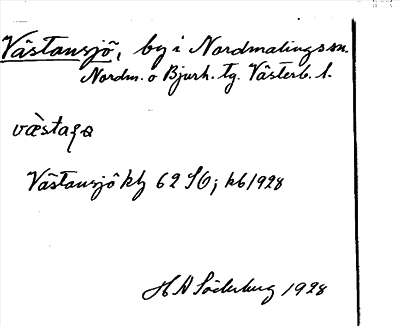 Västansjö, by i Nordmalings sn.
Nordm. o Bjurh. tg. Västerb. l.
Västansjö kbl 62 SO; kb 1928
H A Söderberg 1928